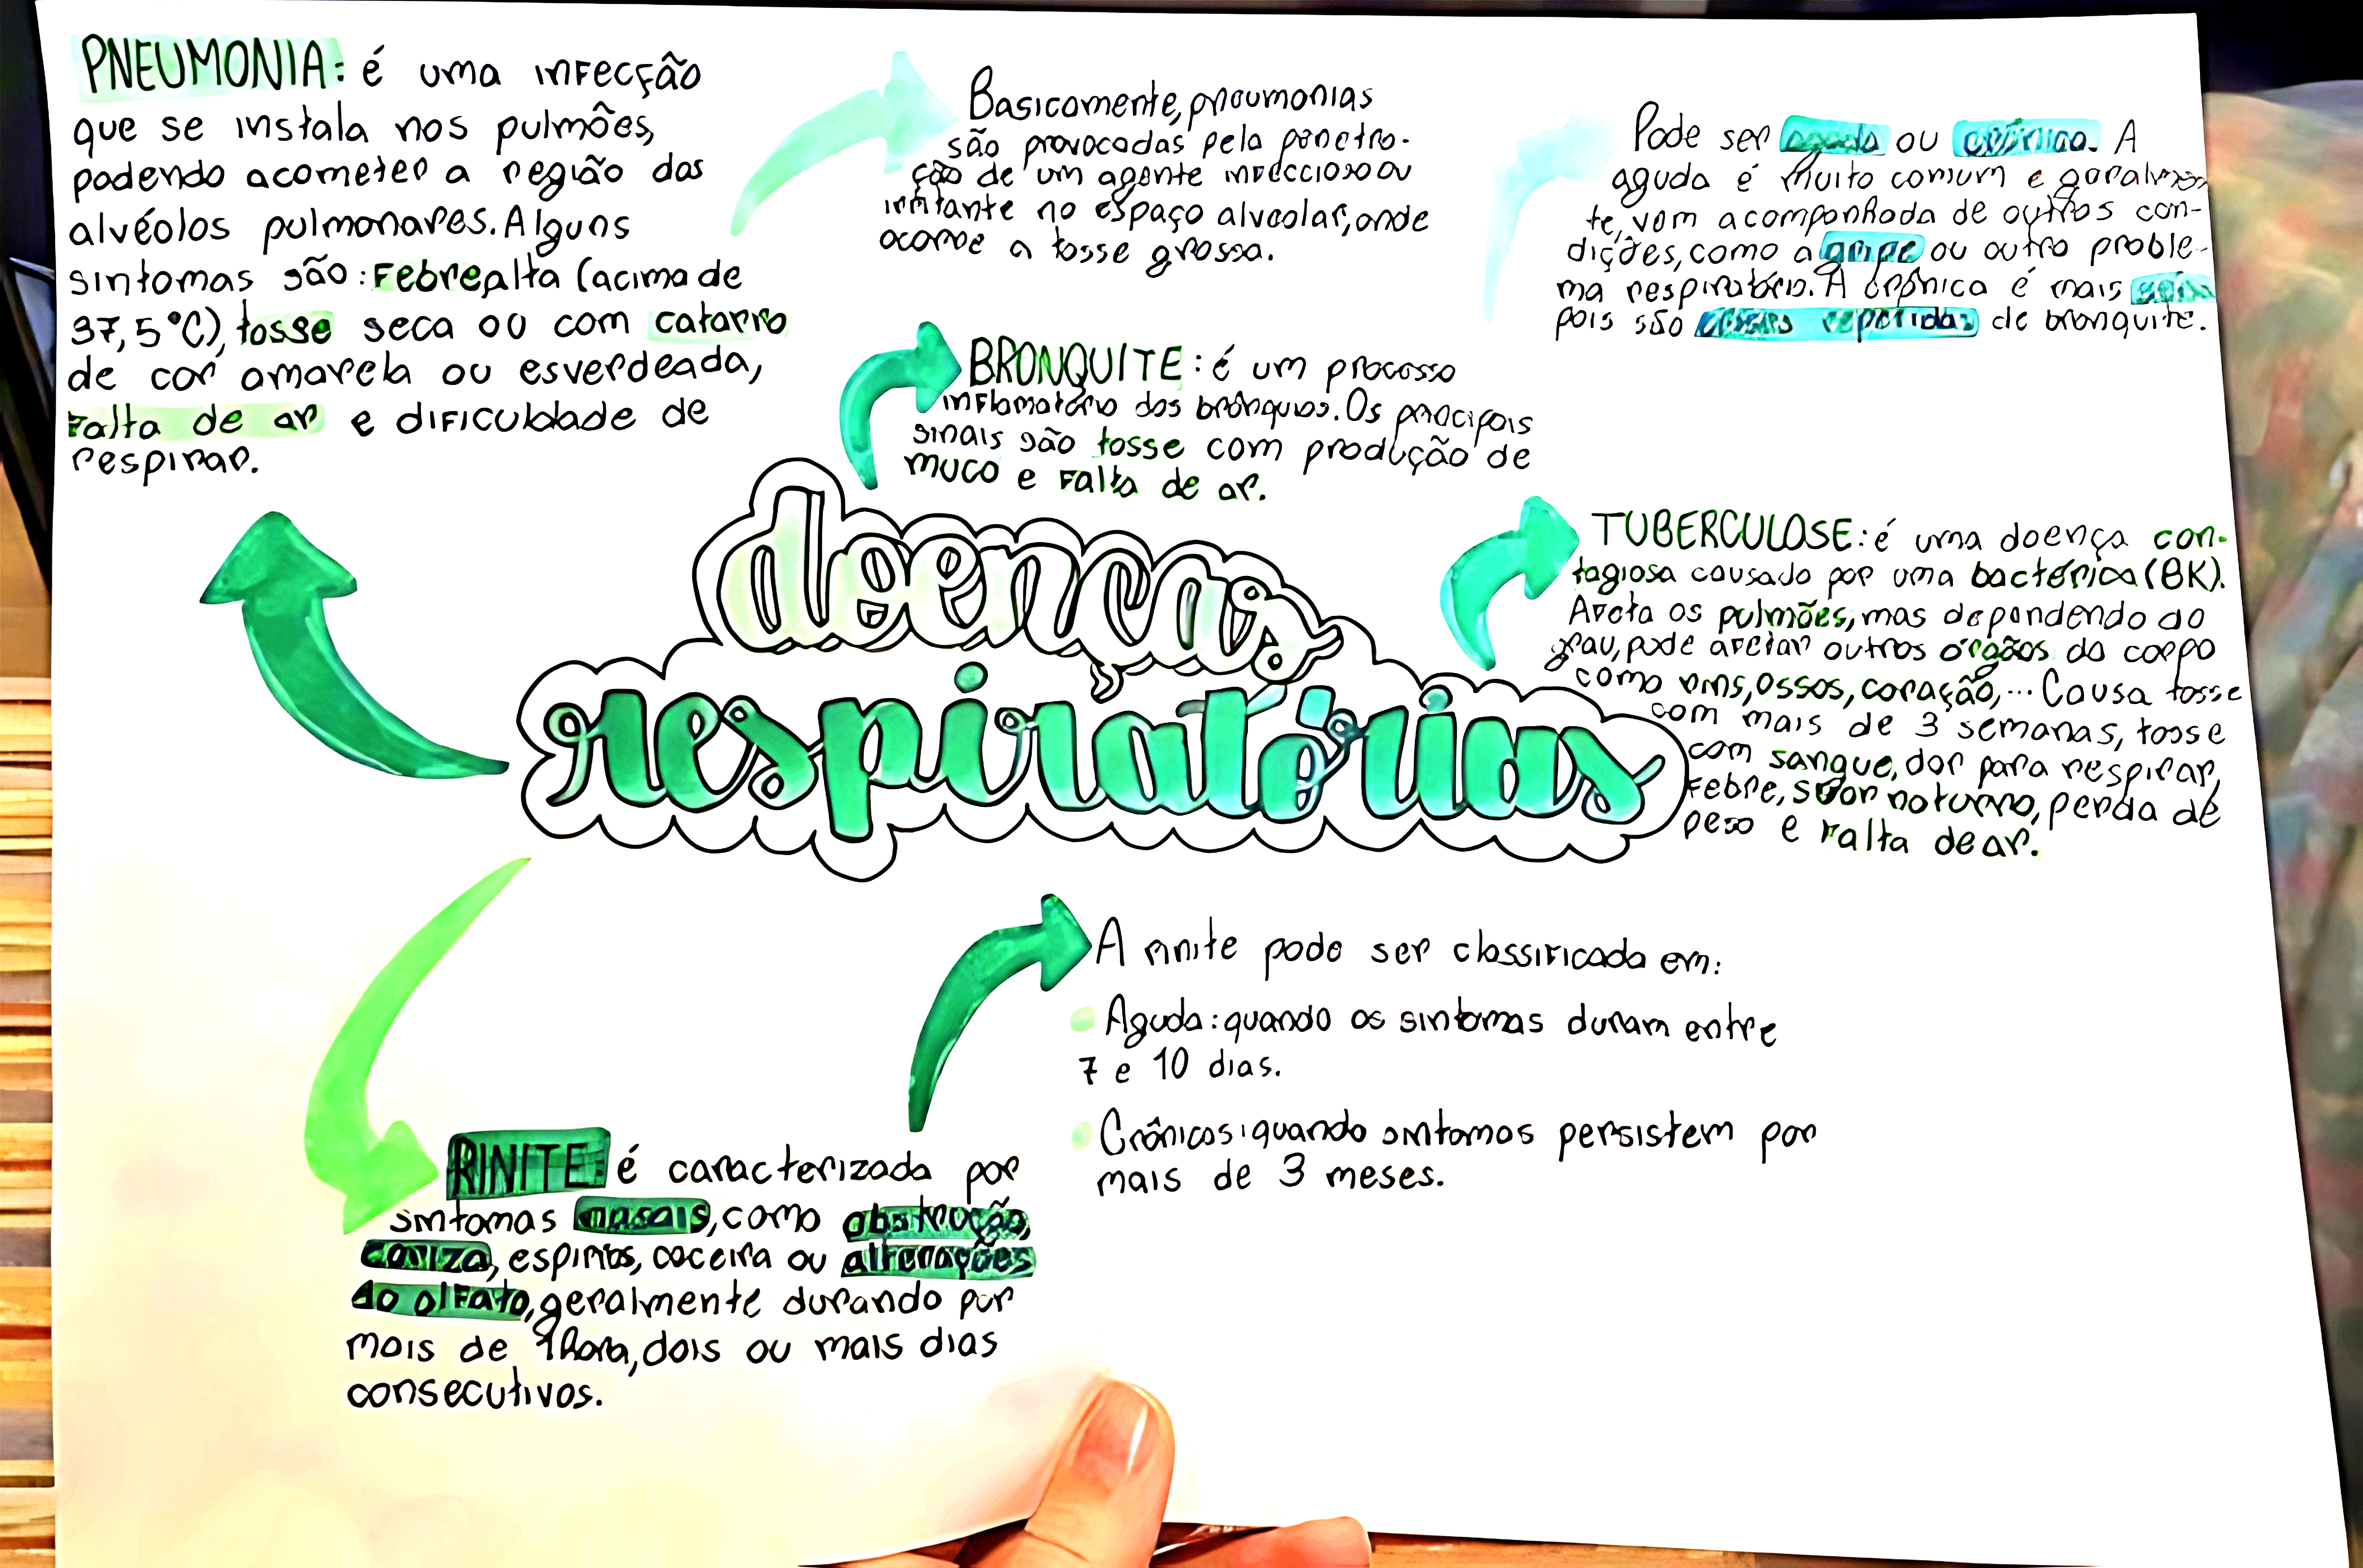 PNEUMONIA: é uma infecção
que se instala nos pulmões,
podendo acometer a região dos
alvéolos pulmonares. Alguns
sintomas são: Febre alta (acima de
37,5°C), tosse seca ou com catarro
de cor amarela ou esverdeada,
Falta de ar e dificuldade de
respirar.
Basicamente, pneumonias
são provocadas pela penetra-
ção de um agente infeccioso ou
irritante no espaço alveolar, onde
ocorre a tosse grossa.
Pode ser aguda ou crônica. A
aguda é muito comum e geralmen-
te, vem acompanhada de outras con-
dições, como a gripe ou outro proble-
ma respiratório. A crônica é mais séria
pois são crises repetidas de bronquite.
BRONQUITE: é um processo
inflamatório dos brônquios. Os principais
sinais são tosse com produção de
muco e Falta de ar.
doenças
respiratórias
TUBERCULOSE: é uma doença con-
tagiosa causada por uma bactéria (BK).
Afeta os pulmões, mas dependendo do
grau, pode afetar outros órgãos do corpo
como rins, ossos, coração,... Causa tosse
com mais de 3 semanas, tosse
com sangue, dor para respirar,
Febre, suor noturno, perda de
peso e Falta de ar.
RINITE: é caracterizada por
sintomas nasais, como obstrução,
coriza, espirros, coceira ou alterações
do olfato, geralmente durando por
mais de 1 hora, dois ou mais dias
consecutivos.
A rinite pode ser classificada em:
Aguda: quando os sintomas duram entre
7 e 10 dias.
Crônicos: quando sintomas persistem por
mais de 3 meses.